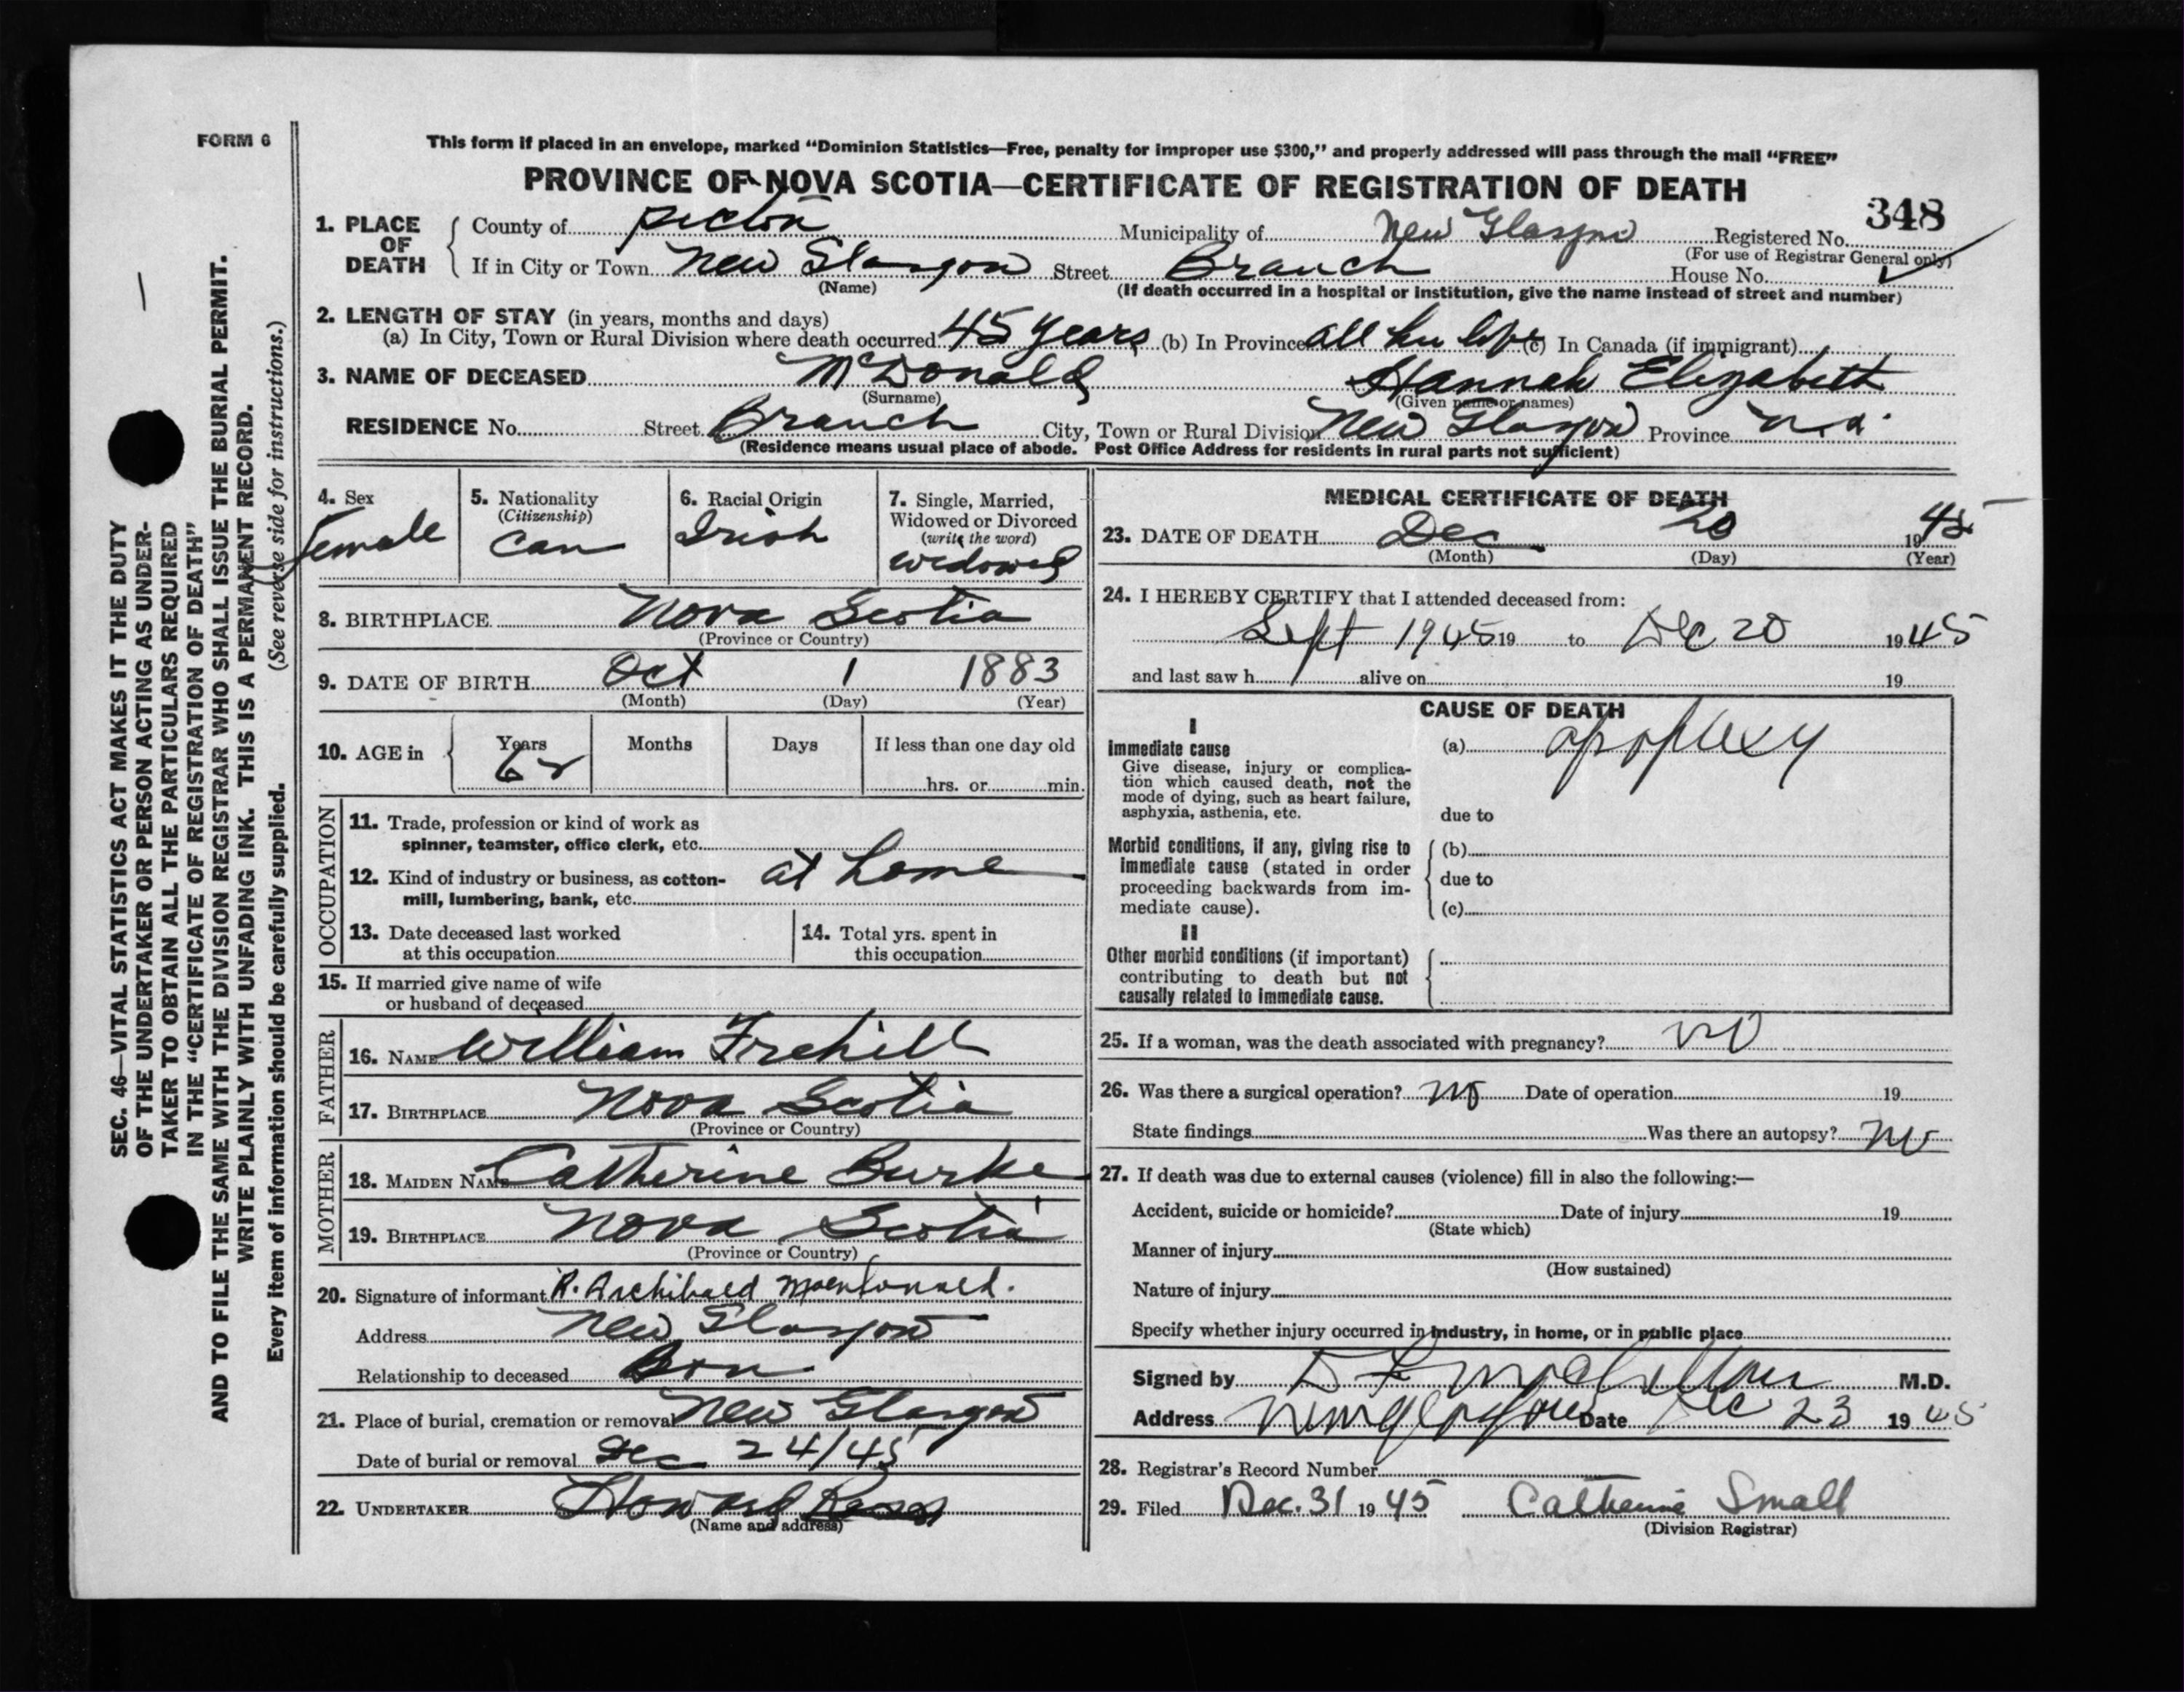 FORM 6
This form if placed in an envelope, marked "Dominion Statistics—Free, penalty for improper use $300," and properly addressed will pass through the mail "FREE"
PROVINCE OF NOVA SCOTIA—CERTIFICATE OF REGISTRATION OF DEATH
348
1. PLACE OF DEATH
County of Pictou Municipality of New Glasgow Registered No.
(For use of Registrar General only)
If in City or Town New Glasgow Street Branch House No.
(Name)
(If death occurred in a hospital or institution, give the name instead of street and number)
2. LENGTH OF STAY (in years, months and days)
(a) In City, Town or Rural Division where death occurred 45 years (b) In Province all her life (c) In Canada (if immigrant)
3. NAME OF DECEASED McDonald Hannah Elizabeth
(Surname) (Given name or names)
RESIDENCE No. Street Branch City, Town or Rural Division New Glasgow Province n.s.
(Residence means usual place of abode. Post Office Address for residents in rural parts not sufficient)
4. Sex
female
5. Nationality
(Citizenship)
Can
6. Racial Origin
Irish
7. Single, Married,
Widowed or Divorced
(write the word)
widowed
8. BIRTHPLACE Nova Scotia
(Province or Country)
9. DATE OF BIRTH Oct 1 1883
(Month) (Day) (Year)
10. AGE in
Years Months Days If less than one day old
62
hrs. or min.
OCCUPATION
11. Trade, profession or kind of work as
spinner, teamster, office clerk, etc.
12. Kind of industry or business, as cotton-
mill, lumbering, bank, etc.
at home
13. Date deceased last worked
at this occupation
14. Total yrs. spent in
this occupation
15. If married give name of wife
or husband of deceased
FATHER
16. NAME William Frehill
17. BIRTHPLACE Nova Scotia
(Province or Country)
MOTHER
18. MAIDEN NAME Catherine Burke
19. BIRTHPLACE Nova Scotia
(Province or Country)
20. Signature of informant R. Archibald MacDonald.
Address New Glasgow
Relationship to deceased Son
21. Place of burial, cremation or removal New Glasgow
Date of burial or removal Dec 24/45
22. UNDERTAKER Howard
(Name and address)
MEDICAL CERTIFICATE OF DEATH
23. DATE OF DEATH Dec 20 1945
(Month) (Day) (Year)
24. I HEREBY CERTIFY that I attended deceased from:
Sept 1945 19 to Dec 20 1945
and last saw h alive on 19
CAUSE OF DEATH
I
Immediate cause
Give disease, injury or complica-
tion which caused death, not the
mode of dying, such as heart failure,
asphyxia, asthenia, etc.
(a) apoplexy
due to
Morbid conditions, if any, giving rise to
immediate cause (stated in order
proceeding backwards from im-
mediate cause).
(b)
due to
(c)
II
Other morbid conditions (if important)
contributing to death but not
causally related to immediate cause.
25. If a woman, was the death associated with pregnancy? no
26. Was there a surgical operation? no Date of operation 19
State findings Was there an autopsy? no
27. If death was due to external causes (violence) fill in also the following:—
Accident, suicide or homicide? Date of injury 19
(State which)
Manner of injury
(How sustained)
Nature of injury
Specify whether injury occurred in industry, in home, or in public place
Signed by D F M.D.
Address New Glasgow Date Dec 23 1945
28. Registrar's Record Number
29. Filed Dec. 31 1945 Catherine Small
(Division Registrar)
SEC. 46—VITAL STATISTICS ACT MAKES IT THE DUTY
OF THE UNDERTAKER OR PERSON ACTING AS UNDER-
TAKER TO OBTAIN ALL THE PARTICULARS REQUIRED
IN THE "CERTIFICATE OF REGISTRATION OF DEATH"
AND TO FILE THE SAME WITH THE DIVISION REGISTRAR WHO SHALL ISSUE THE BURIAL PERMIT.
WRITE PLAINLY WITH UNFADING INK. THIS IS A PERMANENT RECORD.
Every item of information should be carefully supplied. (See reverse side for instructions.)